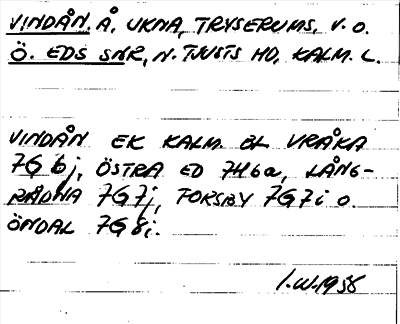 VINDÅN. Å, UKNA, TRYSERUMS, V. O.
Ö. EDS SNR, N. TJUSTS HD, KALM. L.
VINDÅN EK KALM. BL VRÅKA
7G 6j, ÖSTRA ED 7H6a, LÅNG-
RÅDNA 7G7j, TORSBY 7G7i O.
ÖNDAL 7G8i.
I.W.1958